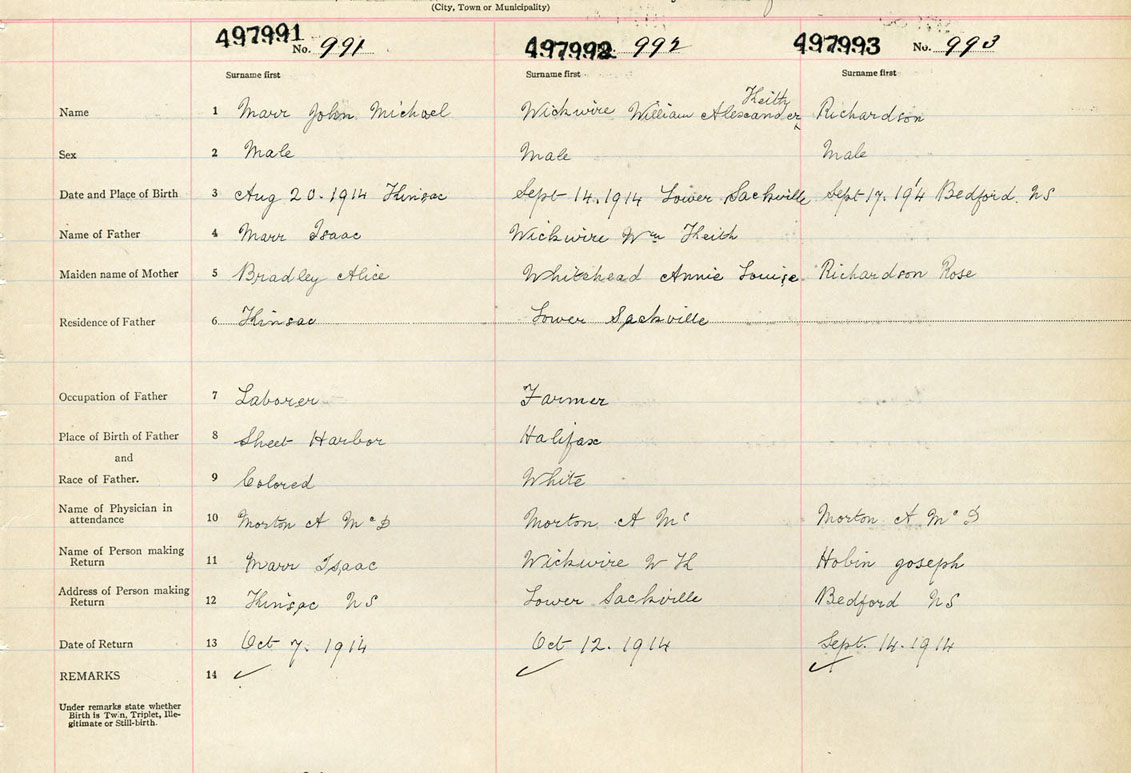 (City, Town or Municipality)
497991 No. 991 497992 992 497993 No. 993
Surname first Surname first Surname first
Keith
Name 1 Marr John Michael Wickwire William Alexander Richardson
Sex 2 Male Male Male
Date and Place of Birth 3 Aug 20. 1914 Kinsac Sept 14. 1914 Lower Sackville Sept 17. 1914 Bedford. NS
Name of Father 4 Marr Isaac Wickwire Wm Keith
Maiden name of Mother 5 Bradley Alice Whitehead Annie Louise Richardson Rose
Residence of Father 6 Kinsac Lower Sackville
Occupation of Father 7 Laborer Farmer
Place of Birth of Father 8 Sheet Harbor Halifax
and
Race of Father. 9 Colored White
Name of Physician in
attendance 10 Morton A McD Morton A Mc Morton A Mc D
Name of Person making
Return 11 Marr Isaac Wickwire W K Hobin Joseph
Address of Person making
Return 12 Kinsac NS Lower Sackville Bedford NS
Date of Return 13 Oct 7. 1914 Oct 12. 1914 Sept. 14. 1914
REMARKS 14 ✓ ✓ ✓
Under remarks state whether
Birth is Twin, Triplet, Ille-
gitimate or Still-birth.